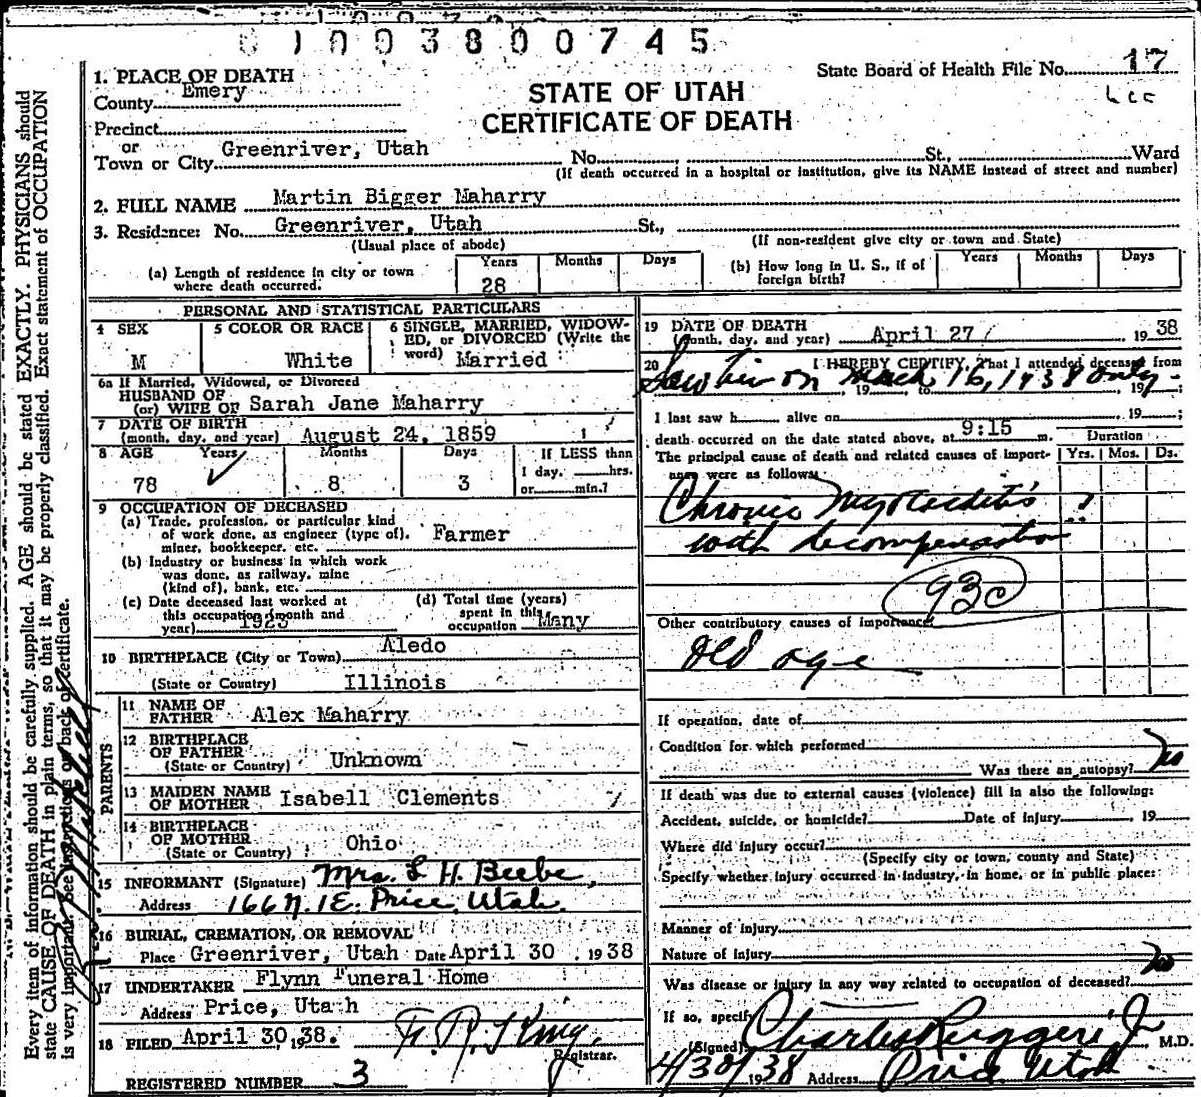 0 1 0 0 3 8 0 0 7 4 5
State Board of Health File No. 17
STATE OF UTAH
CERTIFICATE OF DEATH
1. PLACE OF DEATH
County Emery
Precinct
or
Town or City Greenriver, Utah No. St., Ward
(If death occurred in a hospital or institution, give its NAME instead of street and number)
2. FULL NAME Martin Bigger Maharry
3. Residence: No. Greenriver, Utah St.,
(Usual place of abode) (If non-resident give city or town and State)
(a) Length of residence in city or town where death occurred. Years 28 Months Days
(b) How long in U. S., if of foreign birth? Years Months Days
PERSONAL AND STATISTICAL PARTICULARS
4 SEX M
5 COLOR OR RACE White
6 SINGLE, MARRIED, WIDOWED, or DIVORCED (Write the word) Married
6a If Married, Widowed, or Divorced
HUSBAND OF
(or) WIFE OF Sarah Jane Maharry
7 DATE OF BIRTH
(month, day, and year) August 24, 1859
8 AGE Years 78 Months 8 Days 3
If LESS than
1 day, hrs.
or min.?
9 OCCUPATION OF DECEASED
(a) Trade, profession, or particular kind
of work done, as engineer (type of), Farmer
miner, bookkeeper, etc.
(b) Industry or business in which work
was done, as railway, mine
(kind of), bank, etc.
(c) Date deceased last worked at
this occupation (month and
year) 1923
(d) Total time (years)
spent in this
occupation Many
10 BIRTHPLACE (City or Town) Aledo
(State or Country) Illinois
PARENTS
11 NAME OF
FATHER Alex Maharry
12 BIRTHPLACE
OF FATHER
(State or Country) Unknown
13 MAIDEN NAME
OF MOTHER Isabell Clements
14 BIRTHPLACE
OF MOTHER
(State or Country) Ohio
15 INFORMANT (Signature) Mrs. L H. Beebe,
Address 166 N. 1 E. Price, Utah.
16 BURIAL, CREMATION, OR REMOVAL
Place Greenriver, Utah Date April 30, 1938
17 UNDERTAKER Flynn Funeral Home
Address Price, Utah
18 FILED April 30, 1938.
Registrar.
REGISTERED NUMBER 3
19 DATE OF DEATH
(month, day, and year) April 27, 1938
20 I HEREBY CERTIFY, That I attended deceased from
Saw him on March 16, 1938 only
, 19 , to , 19 ;
I last saw h alive on , 19 ;
death occurred on the date stated above, at 9:15 m.
The principal cause of death and related causes of importance were as follows:
Duration
Yrs. Mos. Ds.
Chronic Myocarditis ?
with decompensation
93c
Other contributory causes of importance:
Old age
If operation, date of
Condition for which performed
Was there an autopsy? No
If death was due to external causes (violence) fill in also the following:
Accident, suicide, or homicide? Date of injury , 19
Where did injury occur?
(Specify city or town, county and State)
Specify whether injury occurred in industry, in home, or in public place:
Manner of injury
Nature of injury
Was disease or injury in any way related to occupation of deceased? No
If so, specify
(Signed) Charles Ruggeri Jr M.D.
4/30/1938 Address Price Utah
Every item of information should be carefully supplied. AGE should be stated EXACTLY. PHYSICIANS should
state CAUSE OF DEATH in plain terms, so that it may be properly classified. Exact statement of OCCUPATION
is very important. See instructions on back of certificate.